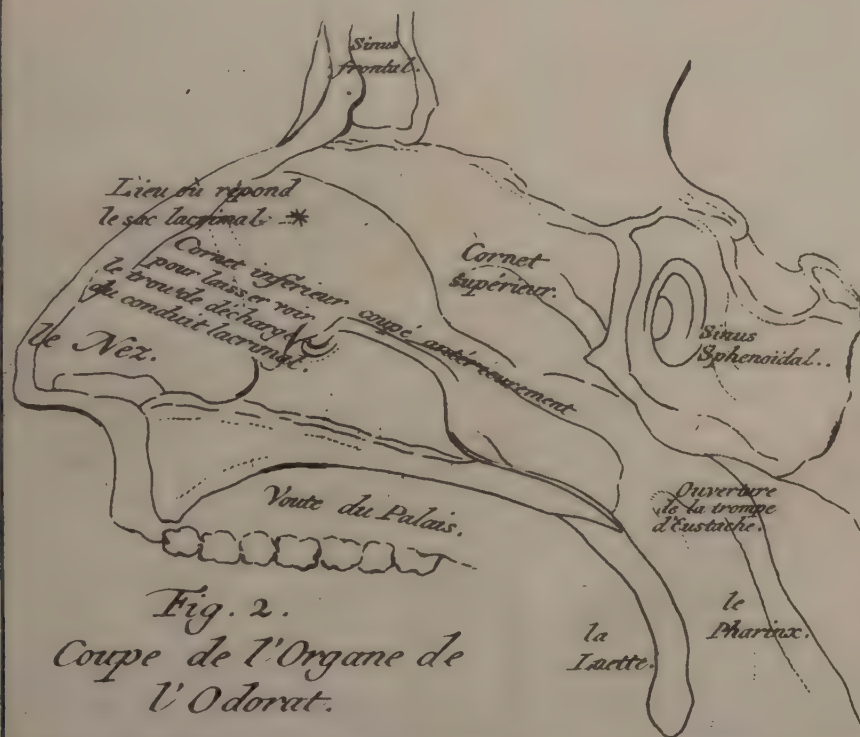 Sinus
frontal.
Lieu où répond
le sac lacrimal *
Cornet inférieur coupé antérieurement
pour laisser voir
le trou de décharge
du conduit lacrimal.
le Nez.
Cornet
supérieur.
Sinus
Sphenoïdal..
Voute du Palais.
Ouverture
de la trompe
d'Eustache.
la
Luette.
le
Pharinx.
Fig. 2.
Coupe de l'Organe de
l'Odorat.